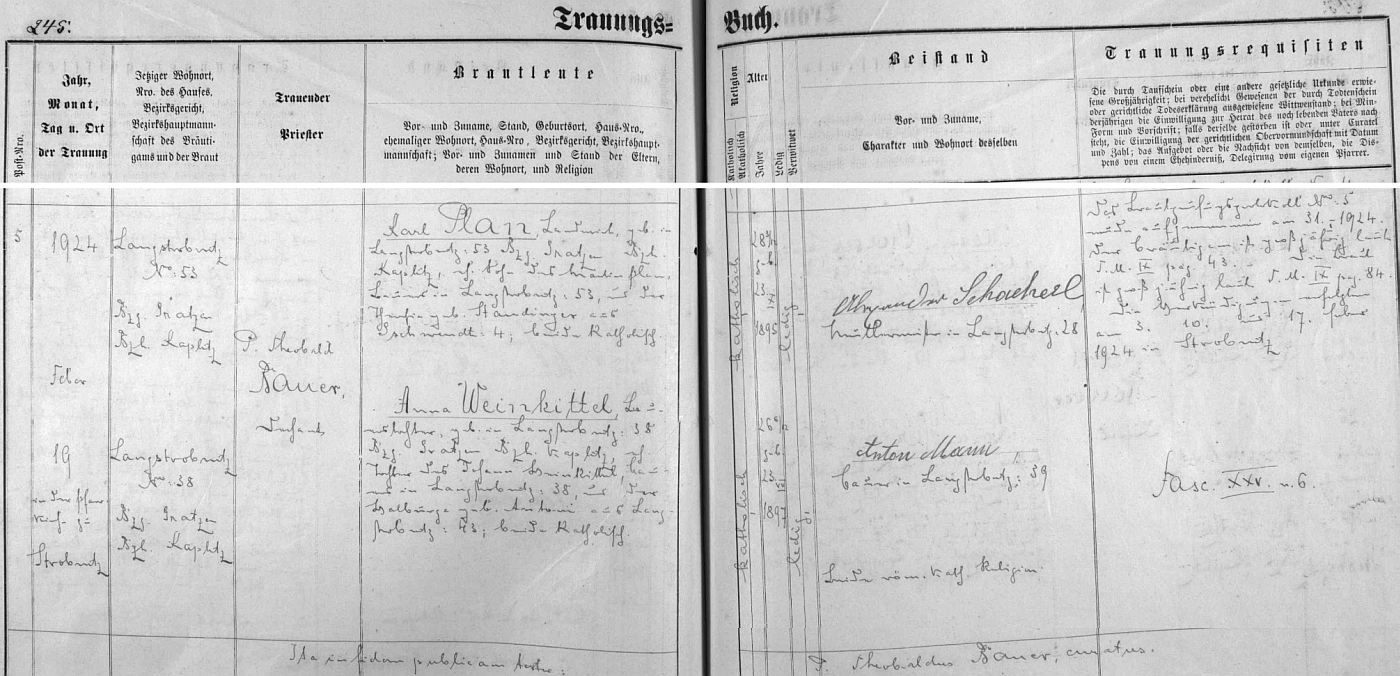 245.
Trauungs=
Buch.
Post-Nro.
Jahr,
Monat,
Tag u. Ort
der Trauung
Jetziger Wohnort,
Nro. des Hauses,
Bezirksgericht,
Bezirkshauptmann-
schaft des Bräuti-
gams und der Braut
Trauender
Priester
Brautleute
Vor- und Zuname, Stand, Geburtsort, Haus-Nro.,
ehemaliger Wohnort, Haus-Nro, Bezirksgericht, Bezirkshaupt-
mannschaft; Vor- und Zunamen und Stand der Eltern,
deren Wohnort, und Religion
Religion
Katholisch
Akatholisch
Alter
Jahre
Ledig
Verwitwet
Beistand
Vor- und Zuname,
Charakter und Wohnort desselben
Trauungsrequisiten
Die durch Taufschein oder eine andere gesetzliche Urkunde erwie-
sene Großjährigkeit; bei verehelicht Gewesenen der durch Todtenschein
oder gerichtliche Todeserklärung ausgewiesene Wittwenstand; bei Min-
derjährigen die Einwilligung zur Heirat des noch lebenden Vaters nach
Form und Vorschrift; falls derselbe gestorben ist oder unter Curatel
steht, die Einwilligung der gerichtlichen Obervormundschaft mit Datum
und Zahl; das Aufgebot oder die Nachsicht von demselben, die Dis-
pens von einem Ehehinderniß, Delegirung vom eigenen Pfarrer.
5
1924
Feber
19
in der Pfarr-
kirche zu
Strobnitz
Langstrobnitz
No: 53
Bzg. Gratzen
Bzh. Kaplitz
Langstrobnitz
No: 38
Bzg. Gratzen
Bzh. Kaplitz
P. Theobald
Bauer,
Dechant
Karl Plan, Landwirt, geb. in
Langstrobnitz: 53 Bzg. Gratzen Bzh.
Kaplitz, ehl. Sohn des Plan,
Bauer in Langstrobnitz: 53, und der
geb. Standinger aus
Gschwendt: 4; beide katholisch.
Anna Weinkittel, Bau-
erstochter, geb. in Langstrobnitz: 38
Bzg. Gratzen Bzh. Kaplitz, ehl.
Tochter des Johann Weinkittel, Bau-
ers in Langstrobnitz: 38, und der
Walburga geb. Antoni aus Lang-
strobnitz: 43; beide katholisch.
katholisch
23
XI
1895
ledig,
katholisch
23
1897
ledig,
Alexander Schacherl
Müllermeister in Langstrobnitz: 28
Anton Mann
Bauer in Langstrobnitz: 39
beide röm. kath. Religion.
Das Brautprüfungsprotokoll No. 5
wurde aufgenommen am 31.-I-1924.
Der Bräutigam ist großjährig laut
T. M. IX pag. 43. - Die Braut
ist großjährig laut T. M. IX pag. 84.
Die Verkündigungen erfolgten
am 3. 10. und 17. Feber
1924 in Strobnitz
Fasc. XXV. n. 6.
Ita in fidem publicam testor:
P. Theobaldus Bauer, curatus.